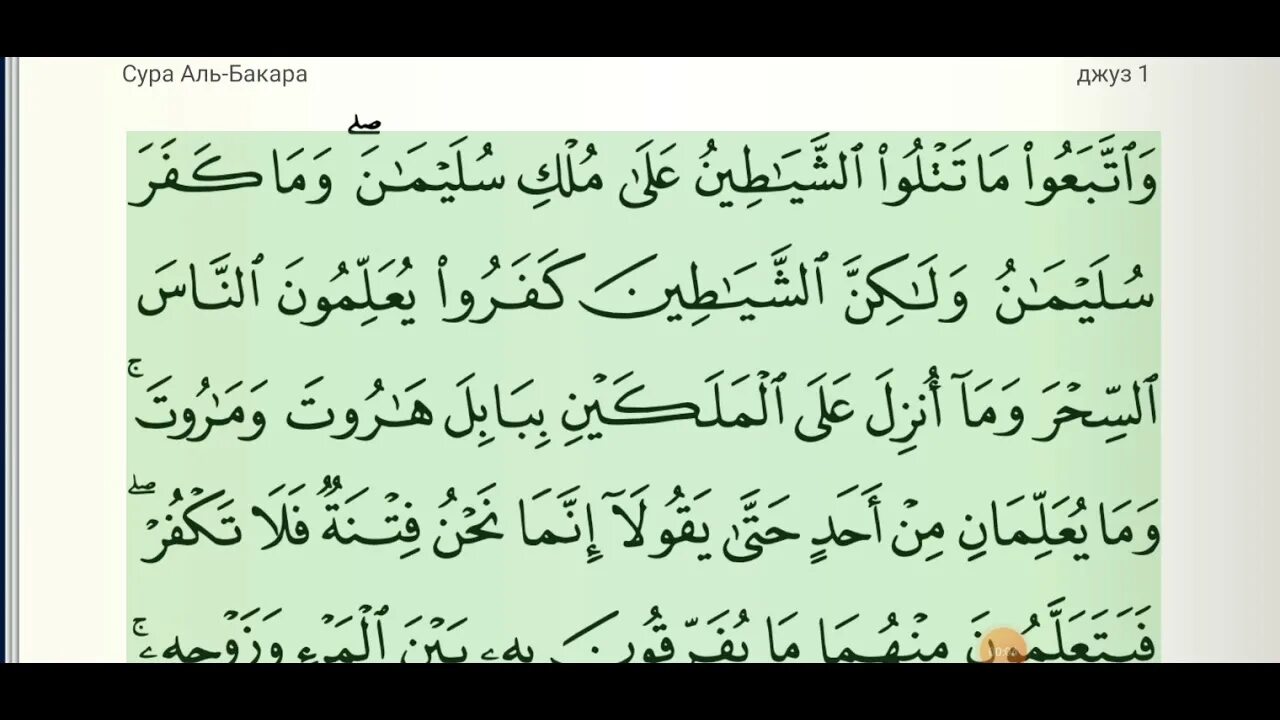 Сура Аль-Бакара
джуз 1
وَٱتَّبَعُوا۟ مَا تَتْلُوا۟ ٱلشَّيَـٰطِينُ عَلَىٰ مُلْكِ سُلَيْمَـٰنَ ۖ وَمَا كَفَرَ
سُلَيْمَـٰنُ وَلَـٰكِنَّ ٱلشَّيَـٰطِينَ كَفَرُوا۟ يُعَلِّمُونَ ٱلنَّاسَ
ٱلسِّحْرَ وَمَآ أُنزِلَ عَلَى ٱلْمَلَكَيْنِ بِبَابِلَ هَـٰرُوتَ وَمَـٰرُوتَ ۚ
وَمَا يُعَلِّمَانِ مِنْ أَحَدٍ حَتَّىٰ يَقُولَآ إِنَّمَا نَحْنُ فِتْنَةٌ فَلَا تَكْفُرْ ۖ
فَيَتَعَلَّمُونَ مِنْهُمَا مَا يُفَرِّقُونَ بِهِۦ بَيْنَ ٱلْمَرْءِ وَزَوْجِهِۦ ۚ